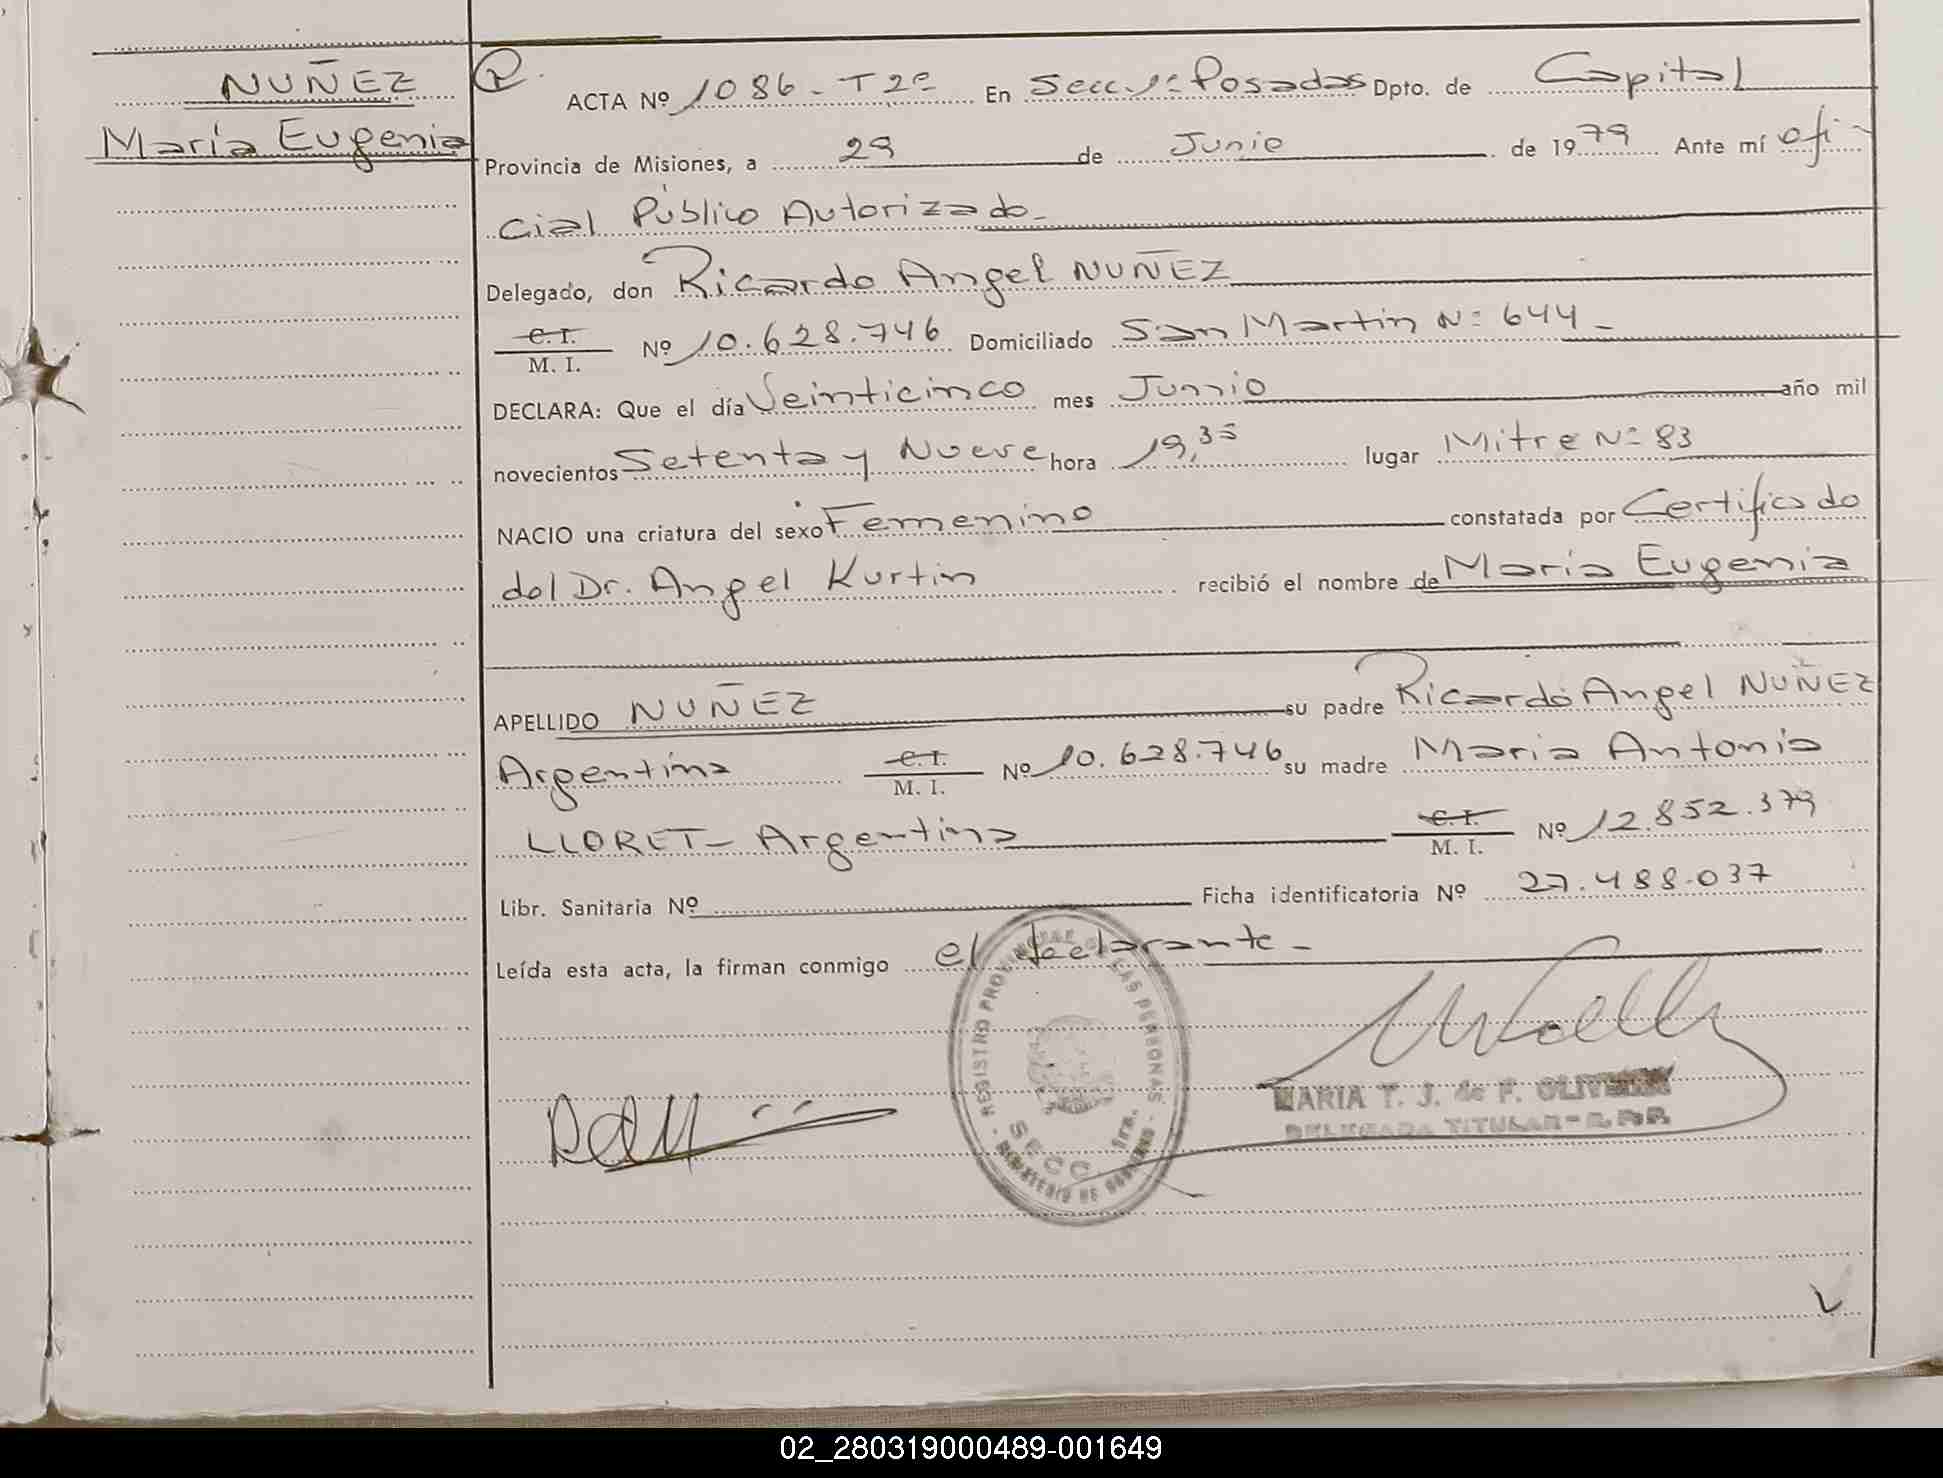 NUÑEZ
María Eugenia
ACTA Nº 1086 - T2º En Secc. 1ª Posadas Dpto. de Capital
Provincia de Misiones, a 29 de Junio de 1979 Ante mí ofi-
cial Público Autorizado-
Delegado, don Ricardo Angel NUÑEZ
C. I.
M. I. Nº 10.628.746 Domiciliado San Martin Nº 644-
DECLARA: Que el día Veinticinco mes Junio año mil
novecientos Setenta y Nueve hora 19,35 lugar Mitre Nº 83
NACIO una criatura del sexo Femenino constatada por Certificado
del Dr. Angel Kurtin recibió el nombre de María Eugenia
APELLIDO NUÑEZ su padre Ricardo Angel NUÑEZ
Argentina C. I. M. I. Nº 10.628.746 su madre Maria Antonia
LLORET- Argentina C. I. M. I. Nº 12.852.379
Libr. Sanitaria Nº Ficha identificatoria Nº 27.488.037
Leída esta acta, la firman conmigo el declarante-
REGISTRO PROVINCIAL DE LAS PERSONAS
SECC. 1ra.
MINISTERIO DE GOBIERNO
MARIA T. J. de F. OLIVEIRA
DELEGADA TITULAR - R. P. P.
02_280319000489-001649